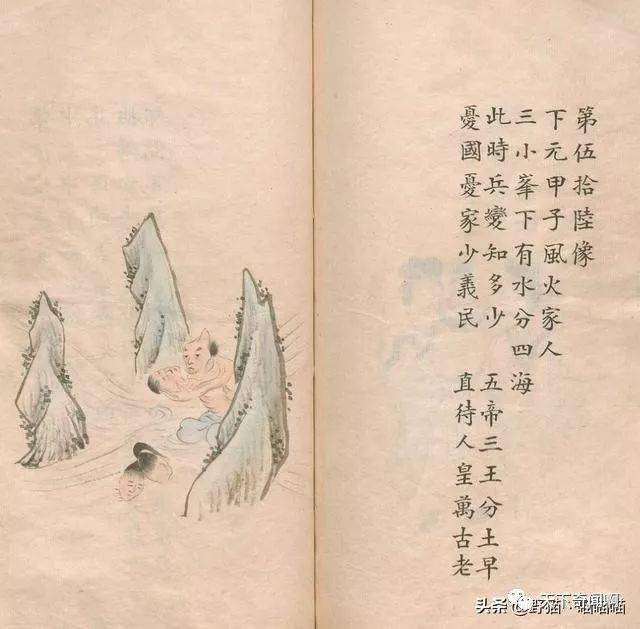 第伍拾陸像
下元甲子風火家人
三小峯下有水分四海
此時兵變知多少 五帝三王分土早
憂國憂家少義民 直待人皇萬古老
头条